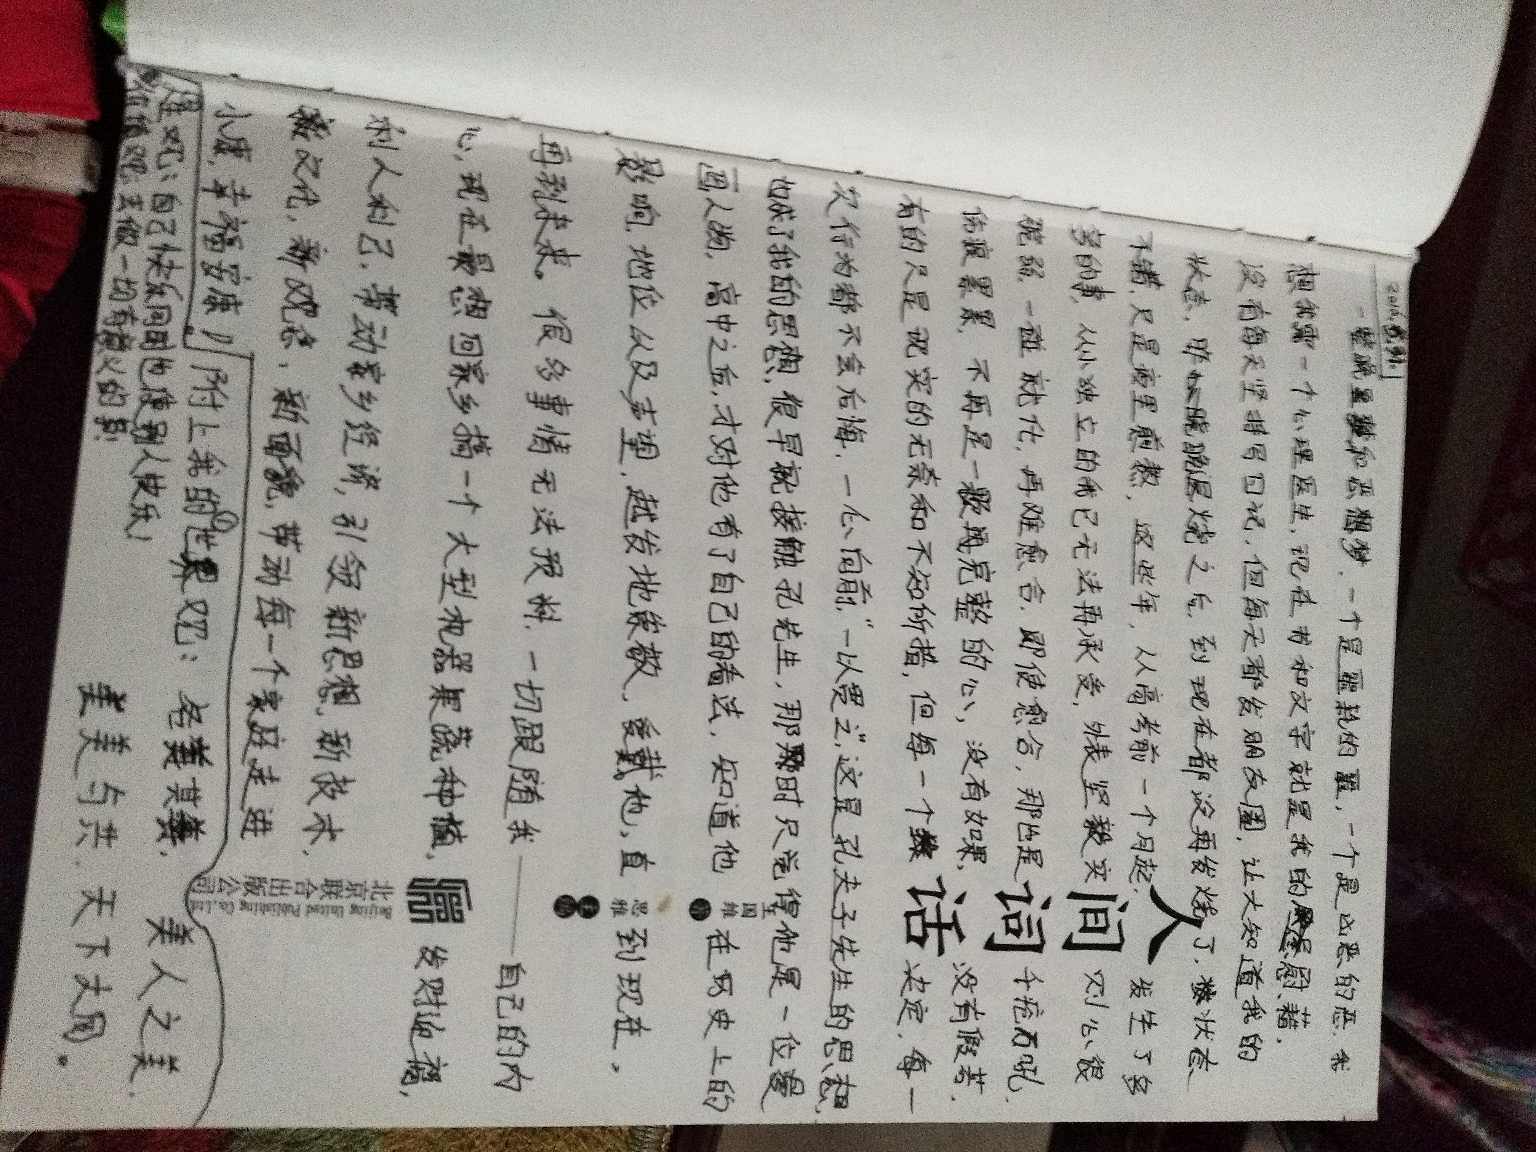 一整晚噩梦和恶想梦，一个是噩耗的噩，一个是凶恶的恶，我
想我需一个心理医生，现在书和文字就是我的慰藉，
没有每天坚持写日记，但每天都发朋友圈，让大知道我的
状态，昨晚退烧之后，到现在都没再发烧了，状态
不错，只是夜里煎熬，这些年，从高考前一个月起，发生了多
多的事，从小独立的我已无法再承受，外表坚毅实则心很
脆弱，一碰就化，再难愈合，即使愈合，那也是千疮百吼，
伤痕累累，不再是一颗完整的心，没有如果，没有假若，
有的只是现实的无奈和不知所措，但每一个决定，每一
次行为都不会后悔，一心向前，“一以贯之”，这是孔夫子先生的思想，
构成了我的思想，很早就接触孔先生，那时只觉得他是一位
人物，高中之后，才对他有了自己的看法，知道他在历史上的
影响，地位以及声望，越发地崇敬，爱戴他，直到现在。
再到未来。很多事情无法预料，一切跟随我——自己的内
心，现在最想回家乡搞一个大型机器果蔬种植，发财造福，
利人利己，带动家乡经济，引领新思想，新技术，
新文化，新观念，新面貌，带动每一个家庭走进
小康，幸福安康！
附上我的世界观：各美其美，美人之美，
美美与共，天下大同。
人生观：自己快乐同时也使别人快乐！
价值观：去做一切有意义的事！
人间词话
北京联合出版公司
Beijing United Publishing Co.,Ltd.